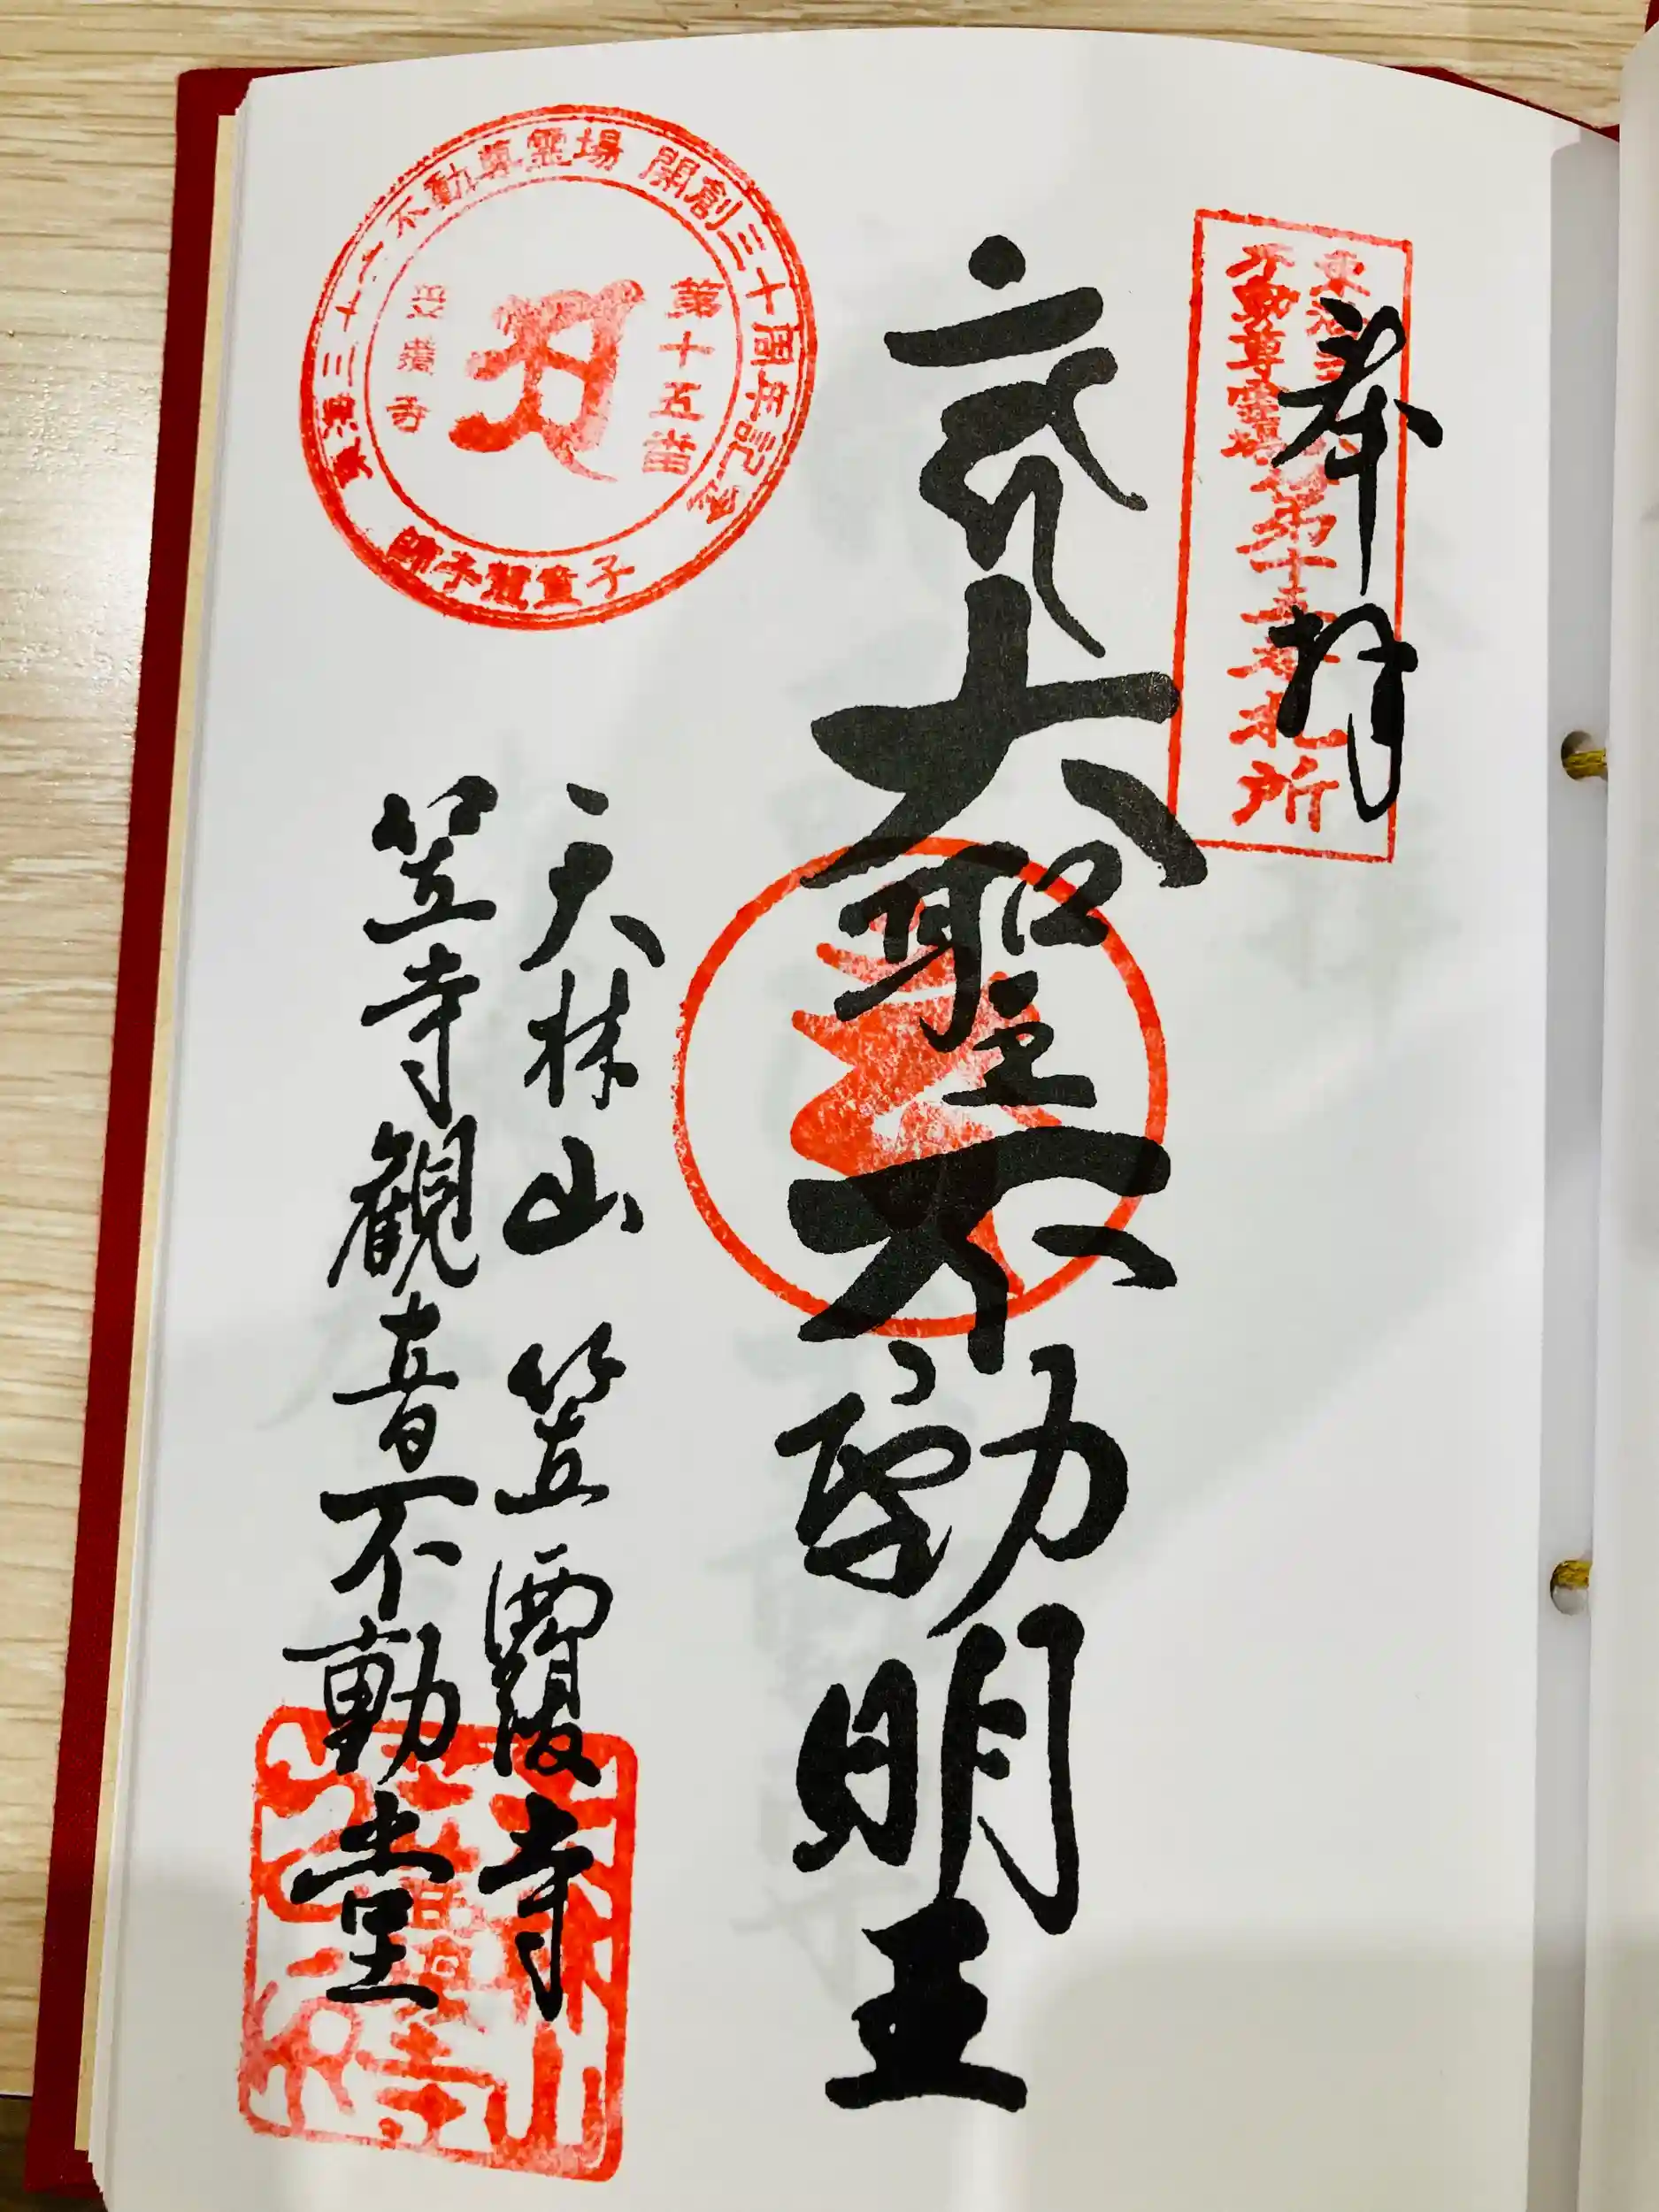 奉拝
東海三十六
不動尊霊場
第十五番札所
大聖不動明王
天林山 笠覆寺
笠寺観音不動堂
東海三十六不動尊霊場 開創三十周年記念
第十五番
笠覆寺